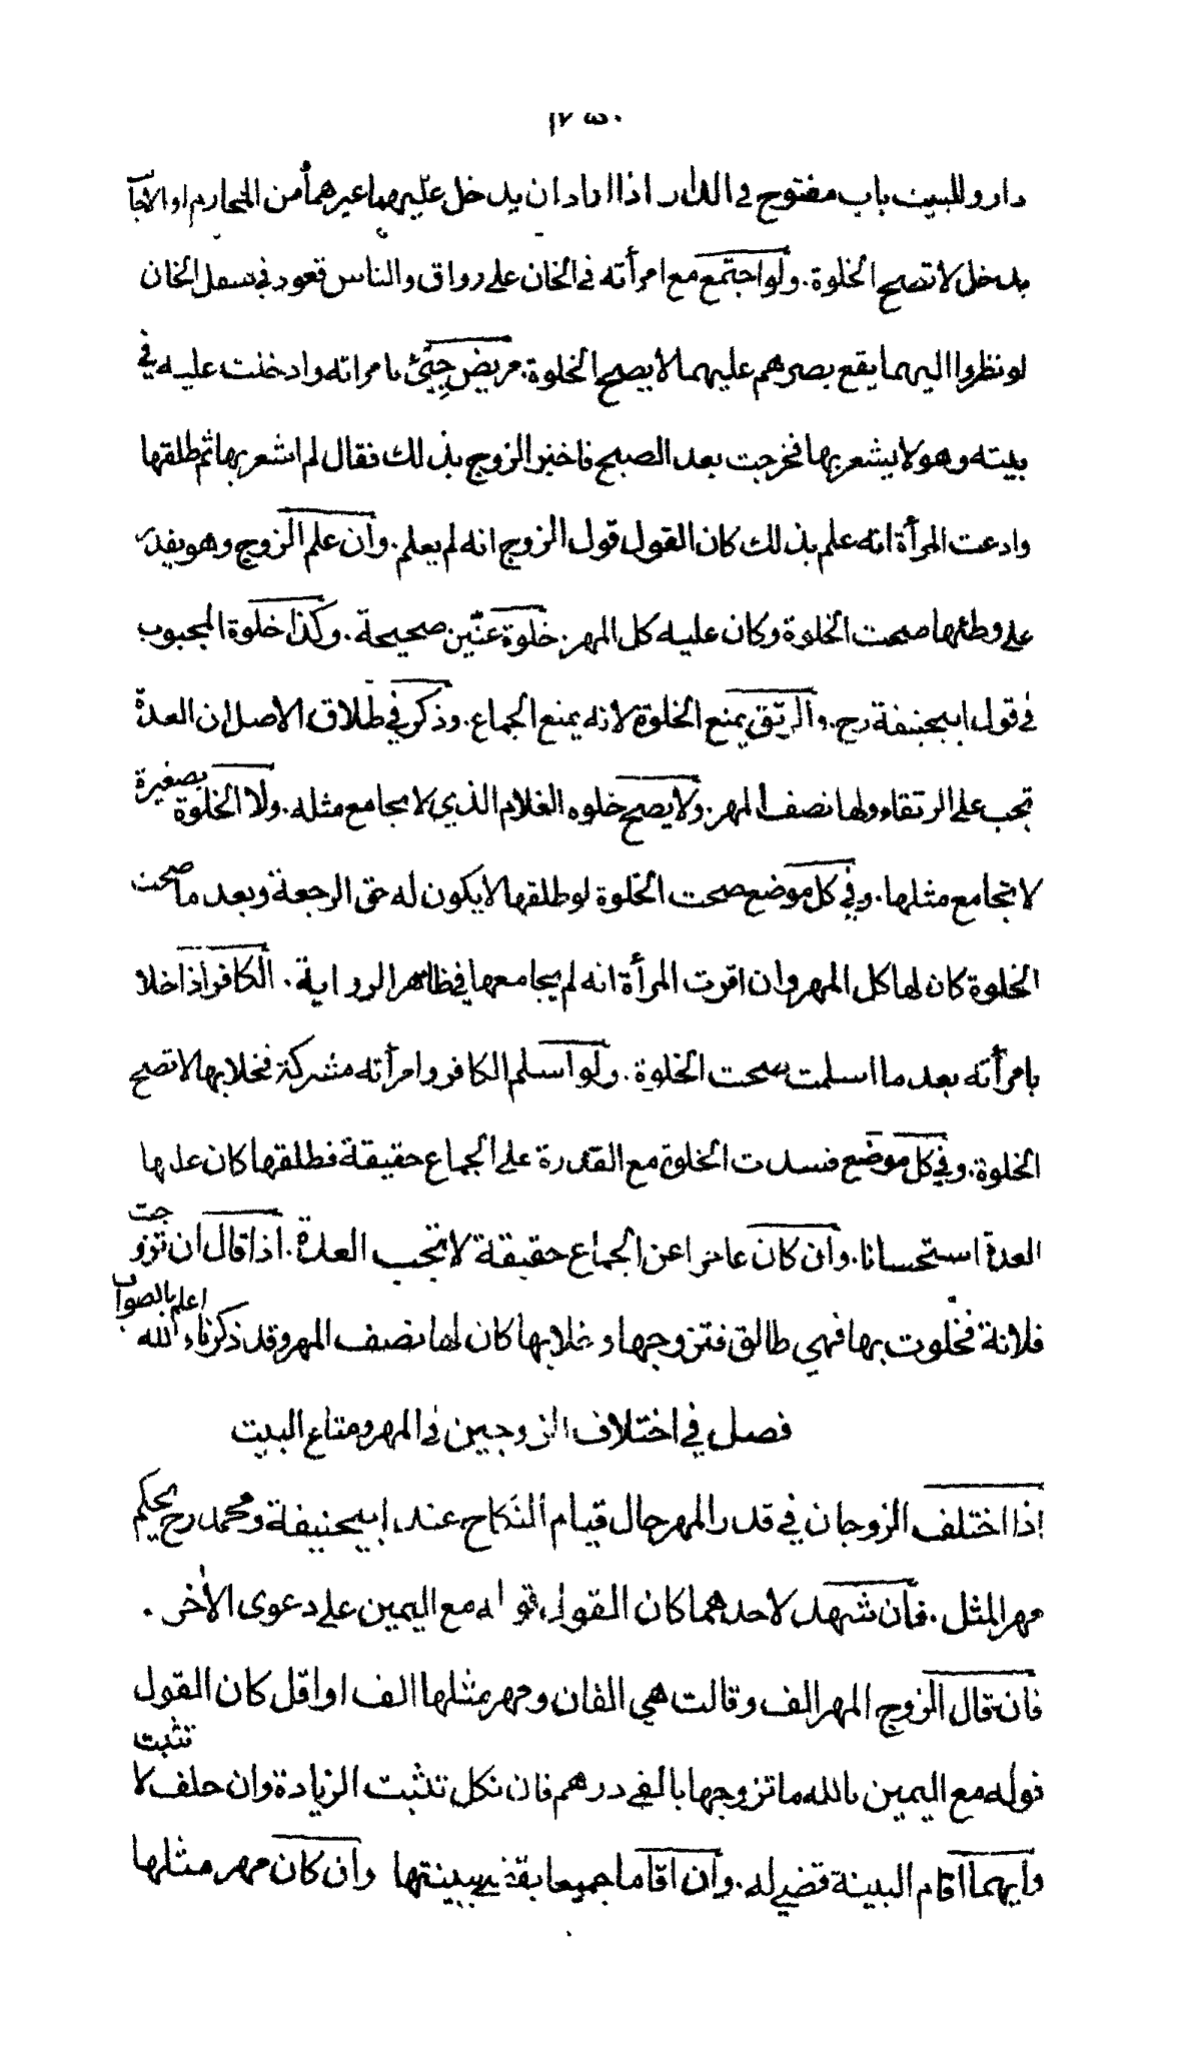 دار وللبيت باب مفتوح في الدار اذا اراد ان يدخل عليهما غيرهما من المحارم او الاجانب
يدخل لا تصح الخلوة. ولو اجتمع مع امرأته في الخان على رواق والناس قعود في سفل الخان
لو نظروا اليهما يقع بصرهم عليهما لا يصح الخلوة. مريض جيئ بامراته وادخلت عليه في
بيته وهو لا يشعر بها فخرجت بعد الصبح فاخبر الزوج بذلك فقال لم اشعر بها ثم طلقها
وادعت المرأة انه علم بذلك كان القول قول الزوج انه لم يعلم. وان علم الزوج وهو يقدر
على وطئها صحت الخلوة وكان عليه كل المهر. خلوة عنّين صحيحة. وكذا خلوة المجبوب
في قول ابيحنيفة رح. والرتق يمنع الخلوة لانه يمنع الجماع. وذكر في طلاق الاصل ان العدة
تجب على الرتقاء ولها نصف المهر. ولا يصح خلوه الغلام الذي لا يجامع مثله. ولا الخلوة بصغيرة
لا يجامع مثلها. وفي كل موضع صحت الخلوة لو طلقها لا يكون له حق الرجعة وبعد ما صحت
الخلوة كان لها كل المهر وان اقرت المرأة انه لم يجامعها في ظاهر الرواية. الكافر اذا خلا
بامرأته بعد ما اسلمت صحت الخلوة. ولو اسلم الكافر وامرأته مشركة فخلا بها لا تصح
الخلوة. وفي كل موضع فسدت الخلوة مع القدرة على الجماع حقيقة فطلقها كان عليها
العدة استحسانا. وان كان عاجزا عن الجماع حقيقة لا تجب العدة. اذا قال ان تزوجت
فلانة فخلوت بها فهي طالق فتزوجها وخلا بها كان لها نصف المهر وقد ذكرناه الله اعلم بالصواب
فصل في اختلاف الزوجين في المهر ومتاع البيت
اذا اختلف الزوجان في قدر المهر حال قيام النكاح عند ابيحنيفة ومحمد رح يحكم
مهر المثل. فان شهد لاحدهما كان القول قوله مع اليمين على دعوى الآخر.
فان قال الزوج المهر الف وقالت هي الفان ومهر مثلها الف او اقل كان القول
قوله مع اليمين بالله ما تزوجها بالفي درهم فان نكل تثبت الزيادة وان حلف لا تثبت
وايهما اقام البينة قضي له. وان اقاما جميعا يقضي ببينتها وان كان مهر مثلها